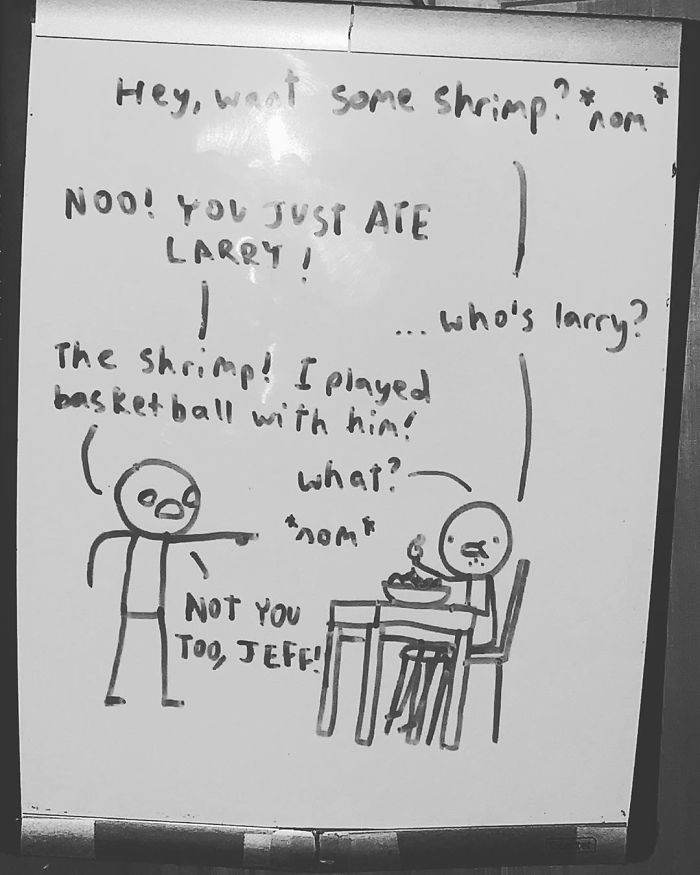 Hey, want some shrimp? *nom*
NOO! YOU JUST ATE
LARRY!
... who's larry?
The shrimp! I played
basketball with him!
what?
*nom*
NOT YOU
TOO, JEFF!